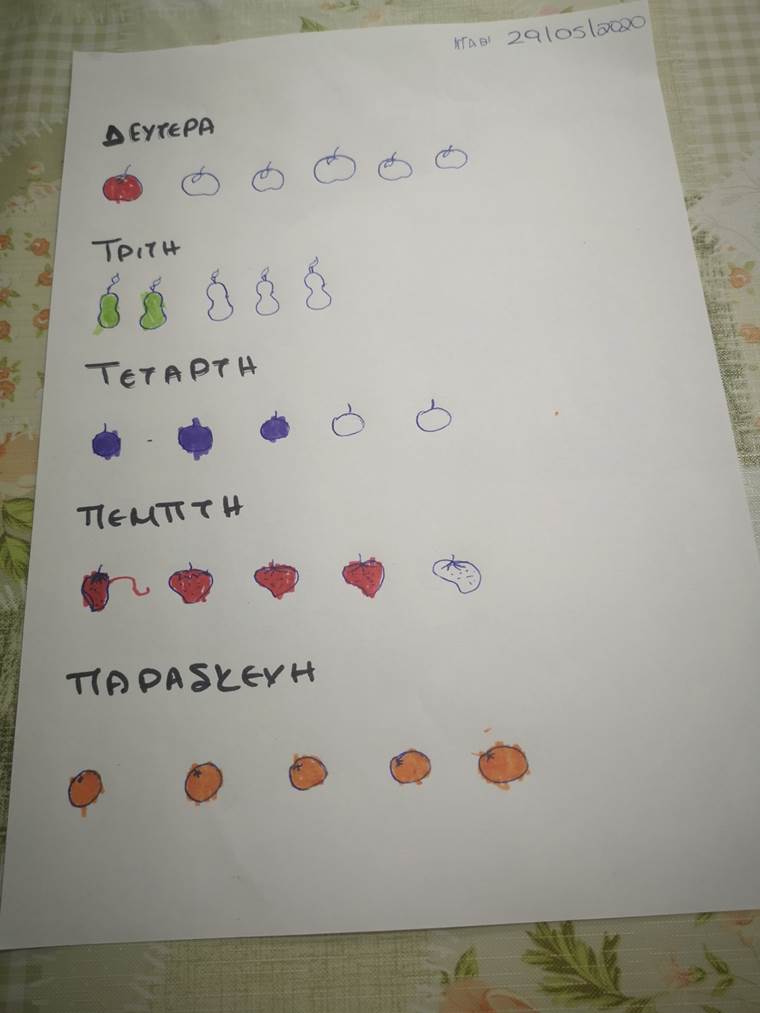 29/05/2020
ΔΕΥΤΕΡΑ
ΤΡΙΤΗ
ΤΕΤΑΡΤΗ
ΠΕΜΠΤΗ
ΠΑΡΑΣΚΕΥΗ